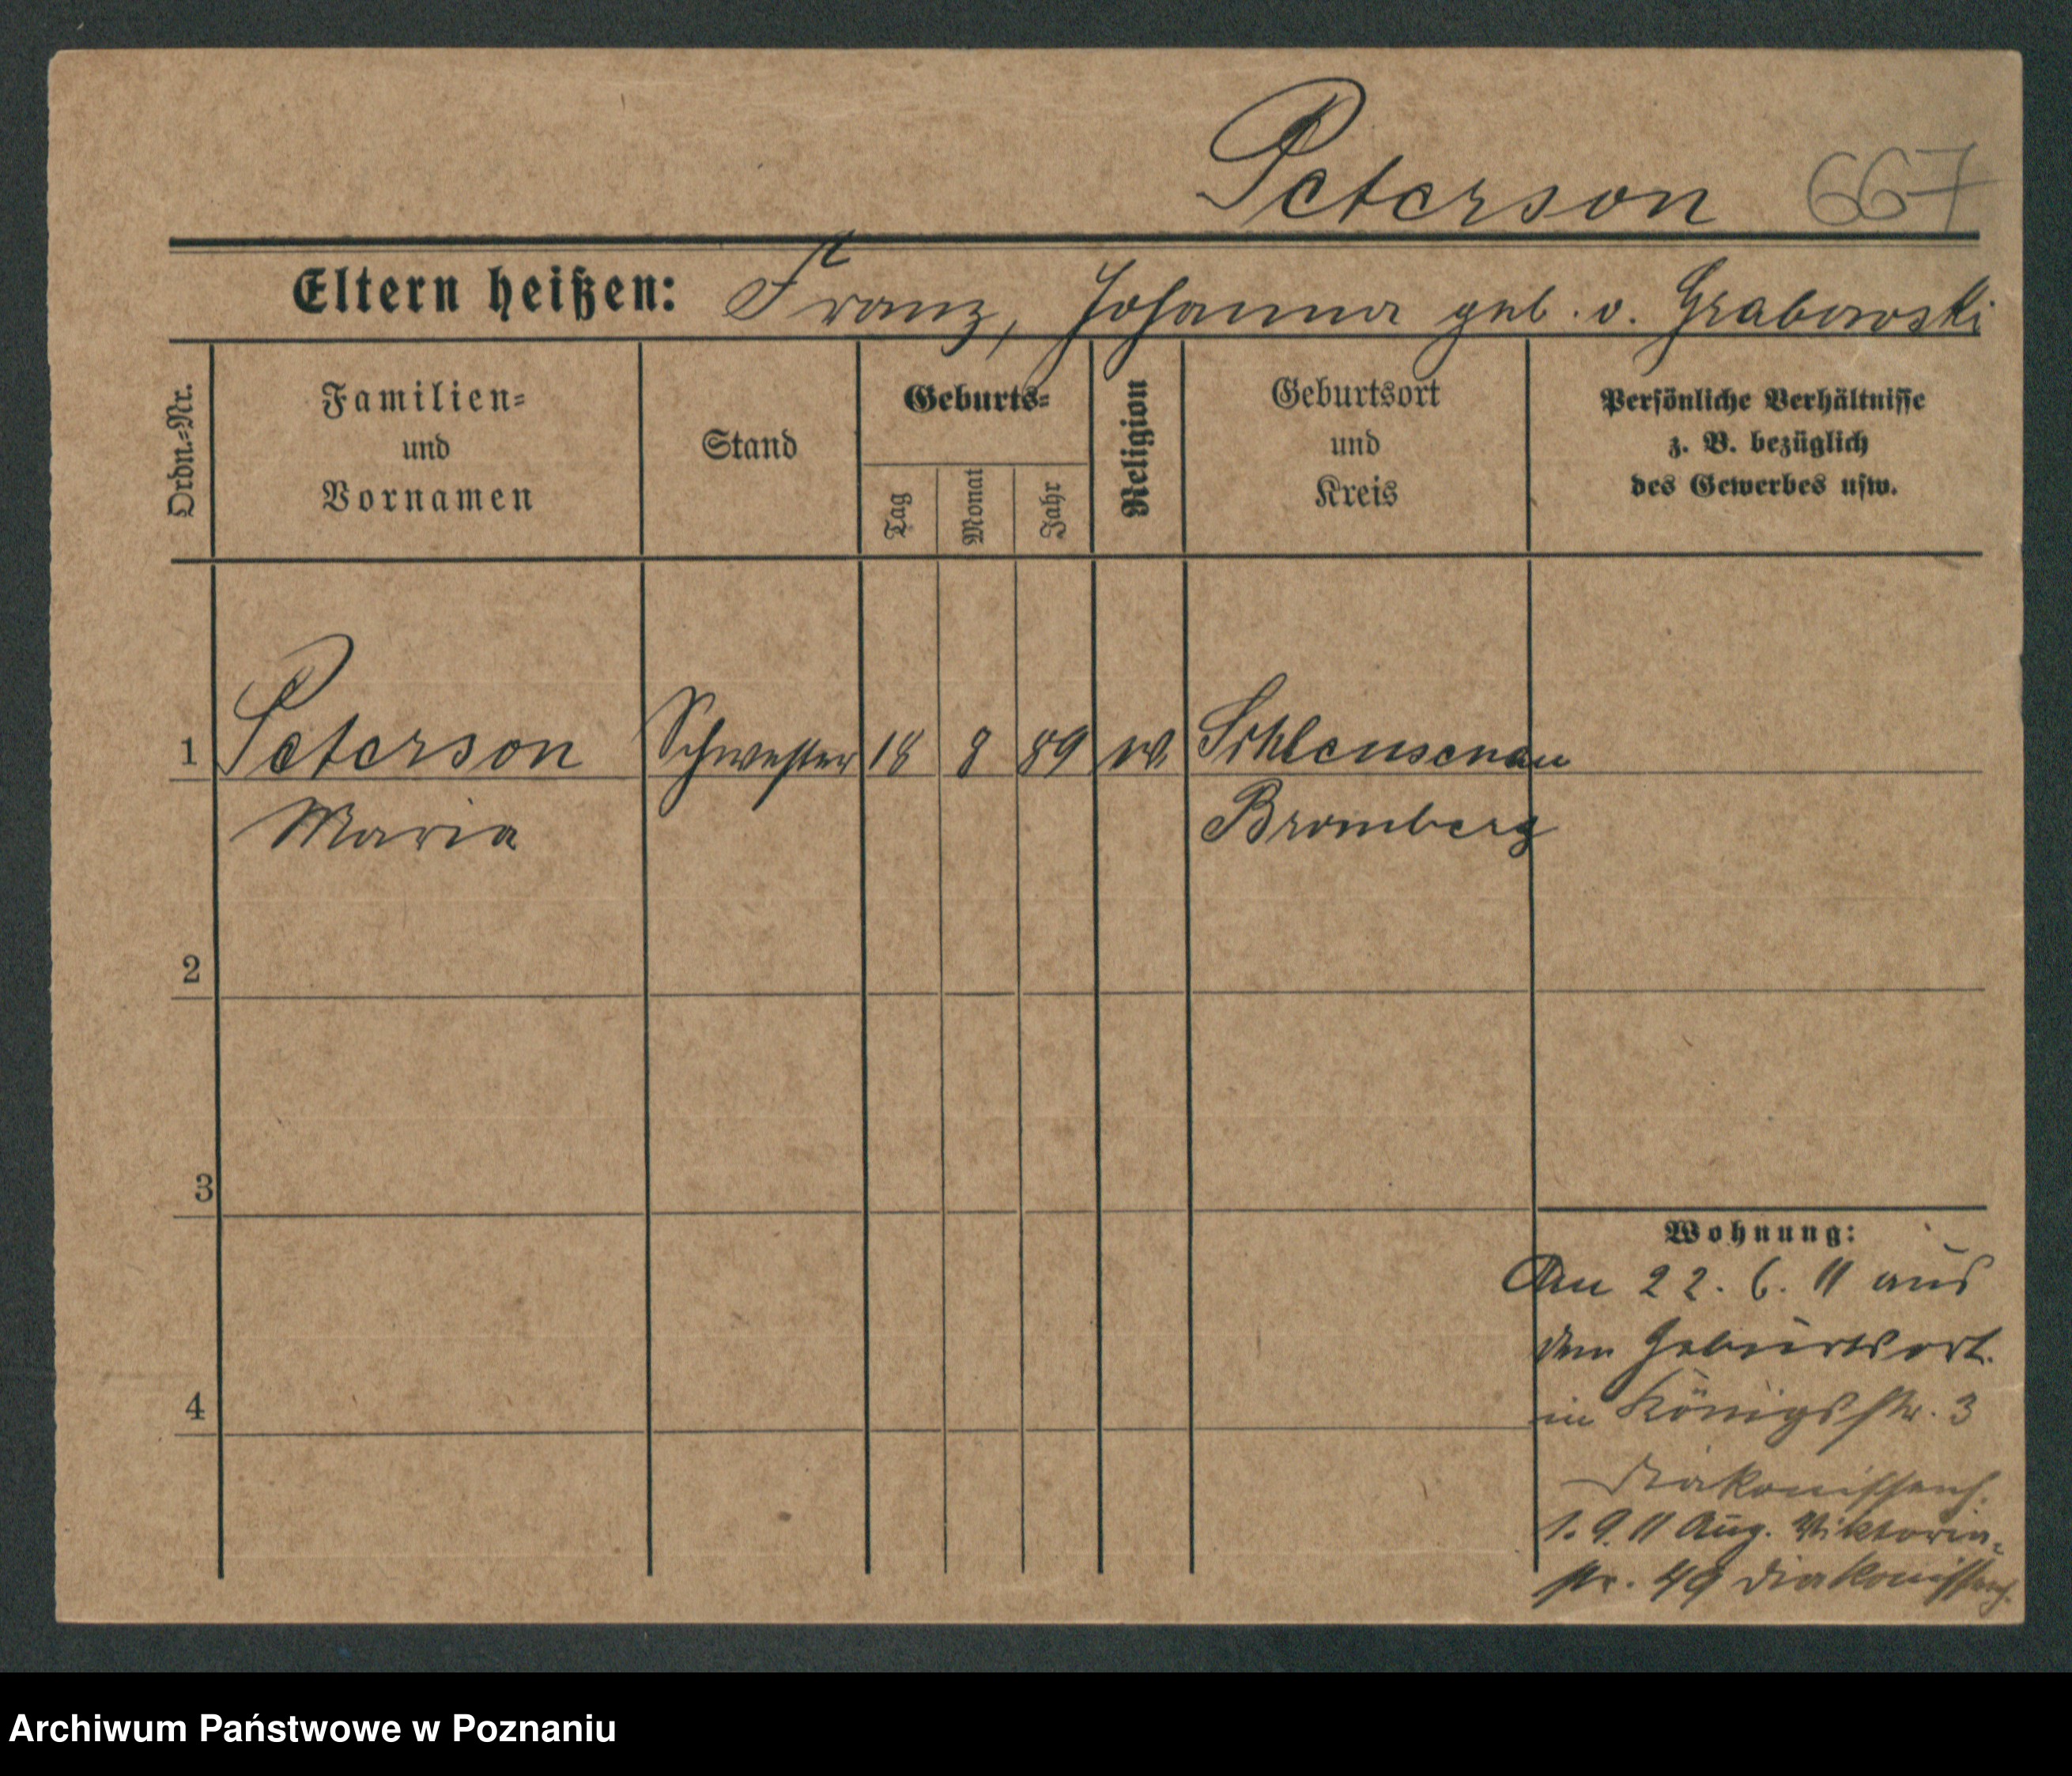 Peterson 667
Eltern heißen: Franz, Johanna geb. v. Grabowski
Ordn.=Nr.
Familien=
und
Vornamen
Stand
Geburts=
Tag
Monat
Jahr
Religion
Geburtsort
und
Kreis
Persönliche Verhältnisse
z. B. bezüglich
des Gewerbes usw.
1 Peterson Schwester 18 8 89 Schleusenau
Maria Bromberg
2
3
4
Wohnung:
An 22. 6. 11 aus
dem Geburtsort
in Königsstr. 3
Diakonissenh.
1. 9. 11 Aug. Viktoria-
str. 49 Diakonissenh.
Archiwum Państwowe w Poznaniu